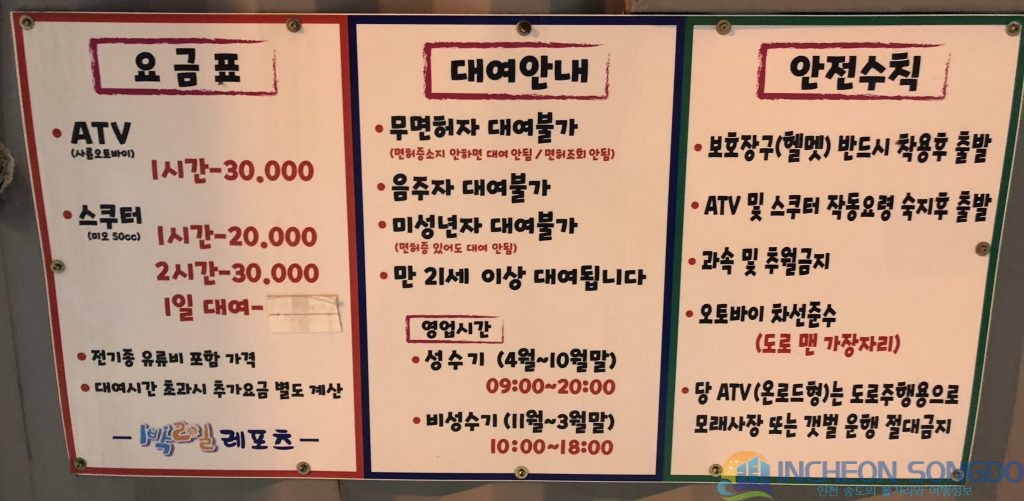 요금표
• ATV
(사륜오토바이)
1시간-30.000
• 스쿠터
(미오 50cc)
1시간-20.000
2시간-30.000
1일 대여-
• 전기종 유류비 포함 가격
• 대여시간 초과시 추가요금 별도 계산
- 1박2일 레포츠 -
대여안내
• 무면허자 대여불가
(면허증소지 안하면 대여 안됨 / 면허조회 안됨)
• 음주자 대여불가
• 미성년자 대여불가
(면허증 있어도 대여 안됨)
• 만 21세 이상 대여됩니다
영업시간
• 성수기 (4월~10월말)
09:00~20:00
• 비성수기 (11월~3월말)
10:00~18:00
안전수칙
• 보호장구(헬멧) 반드시 착용후 출발
• ATV 및 스쿠터 작동요령 숙지후 출발
• 과속 및 추월금지
• 오토바이 차선준수
(도로 맨 가장자리)
• 당 ATV(온로드형)는 도로주행용으로
모래사장 또는 갯벌 운행 절대금지
INCHEON SONGDO
인천 송도의 볼거리와 여행정보